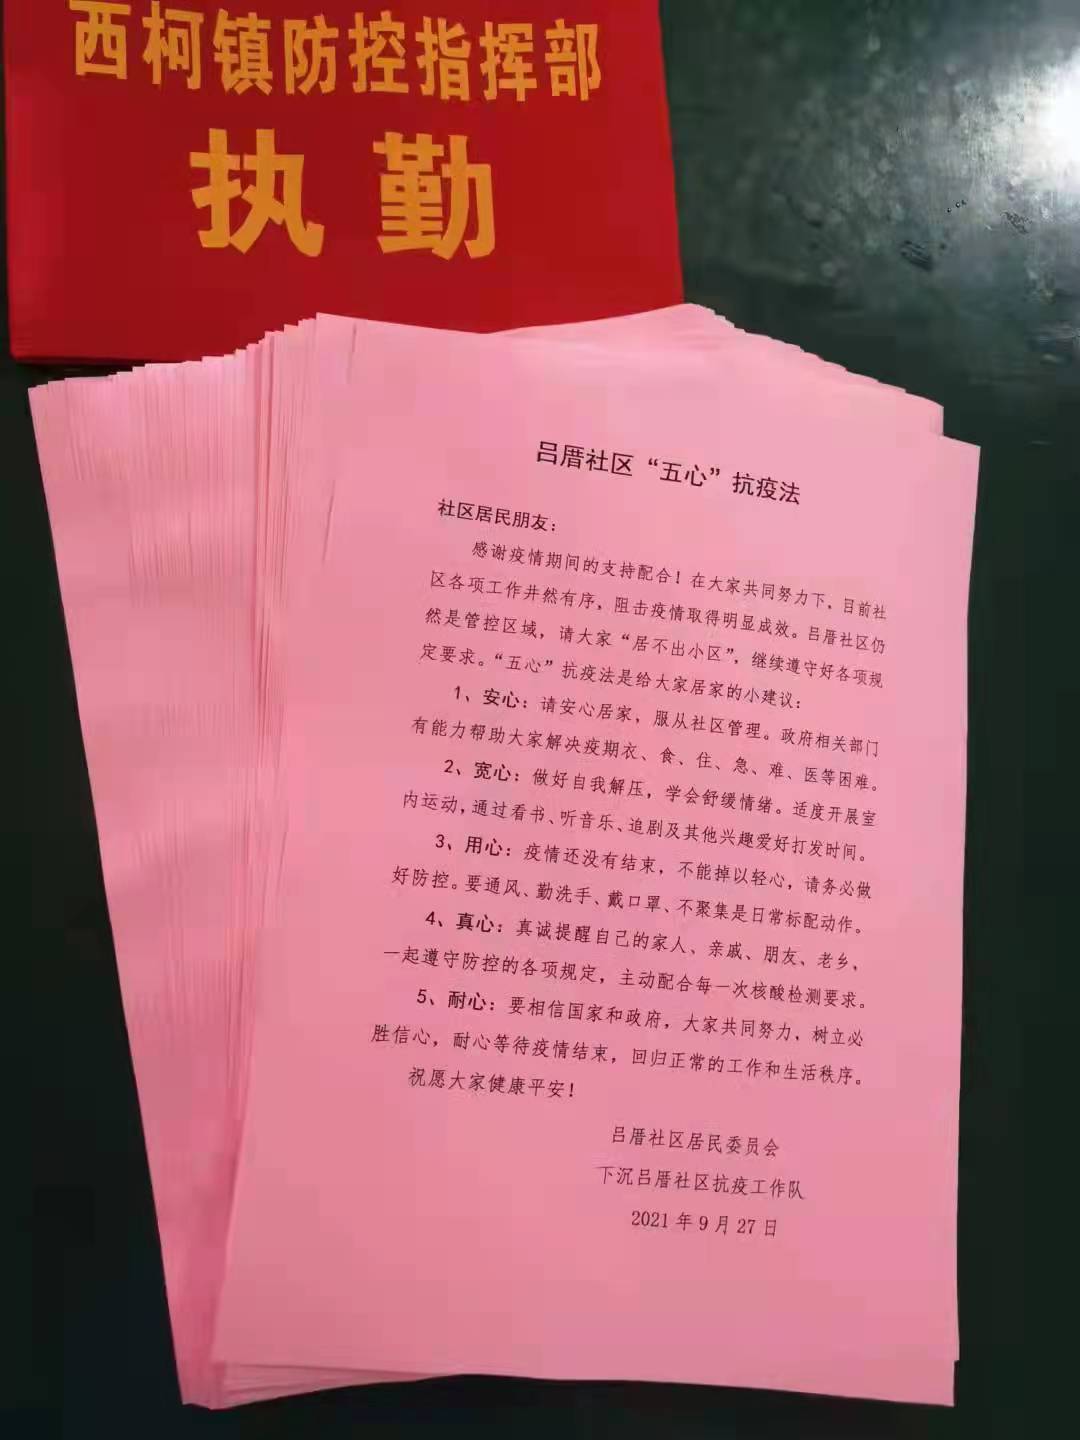 西柯镇防控指挥部
执勤
吕厝社区“五心”抗疫法
社区居民朋友：
感谢疫情期间的支持配合！在大家共同努力下，目前社
区各项工作井然有序，阻击疫情取得明显成效。吕厝社区仍
然是管控区域，请大家“居不出小区”，继续遵守好各项规
定要求。“五心”抗疫法是给大家居家的小建议：
1、安心：请安心居家，服从社区管理。政府相关部门
有能力帮助大家解决疫期衣、食、住、急、难、医等困难。
2、宽心：做好自我解压，学会舒缓情绪。适度开展室
内运动，通过看书、听音乐、追剧及其他兴趣爱好打发时间。
3、用心：疫情还没有结束，不能掉以轻心，请务必做
好防控。要通风、勤洗手、戴口罩、不聚集是日常标配动作。
4、真心：真诚提醒自己的家人、亲戚、朋友、老乡、
一起遵守防控的各项规定，主动配合每一次核酸检测要求。
5、耐心：要相信国家和政府，大家共同努力、树立必
胜信心，耐心等待疫情结束，回归正常的工作和生活秩序。
祝愿大家健康平安！
吕厝社区居民委员会
下沉吕厝社区抗疫工作队
2021年9月27日